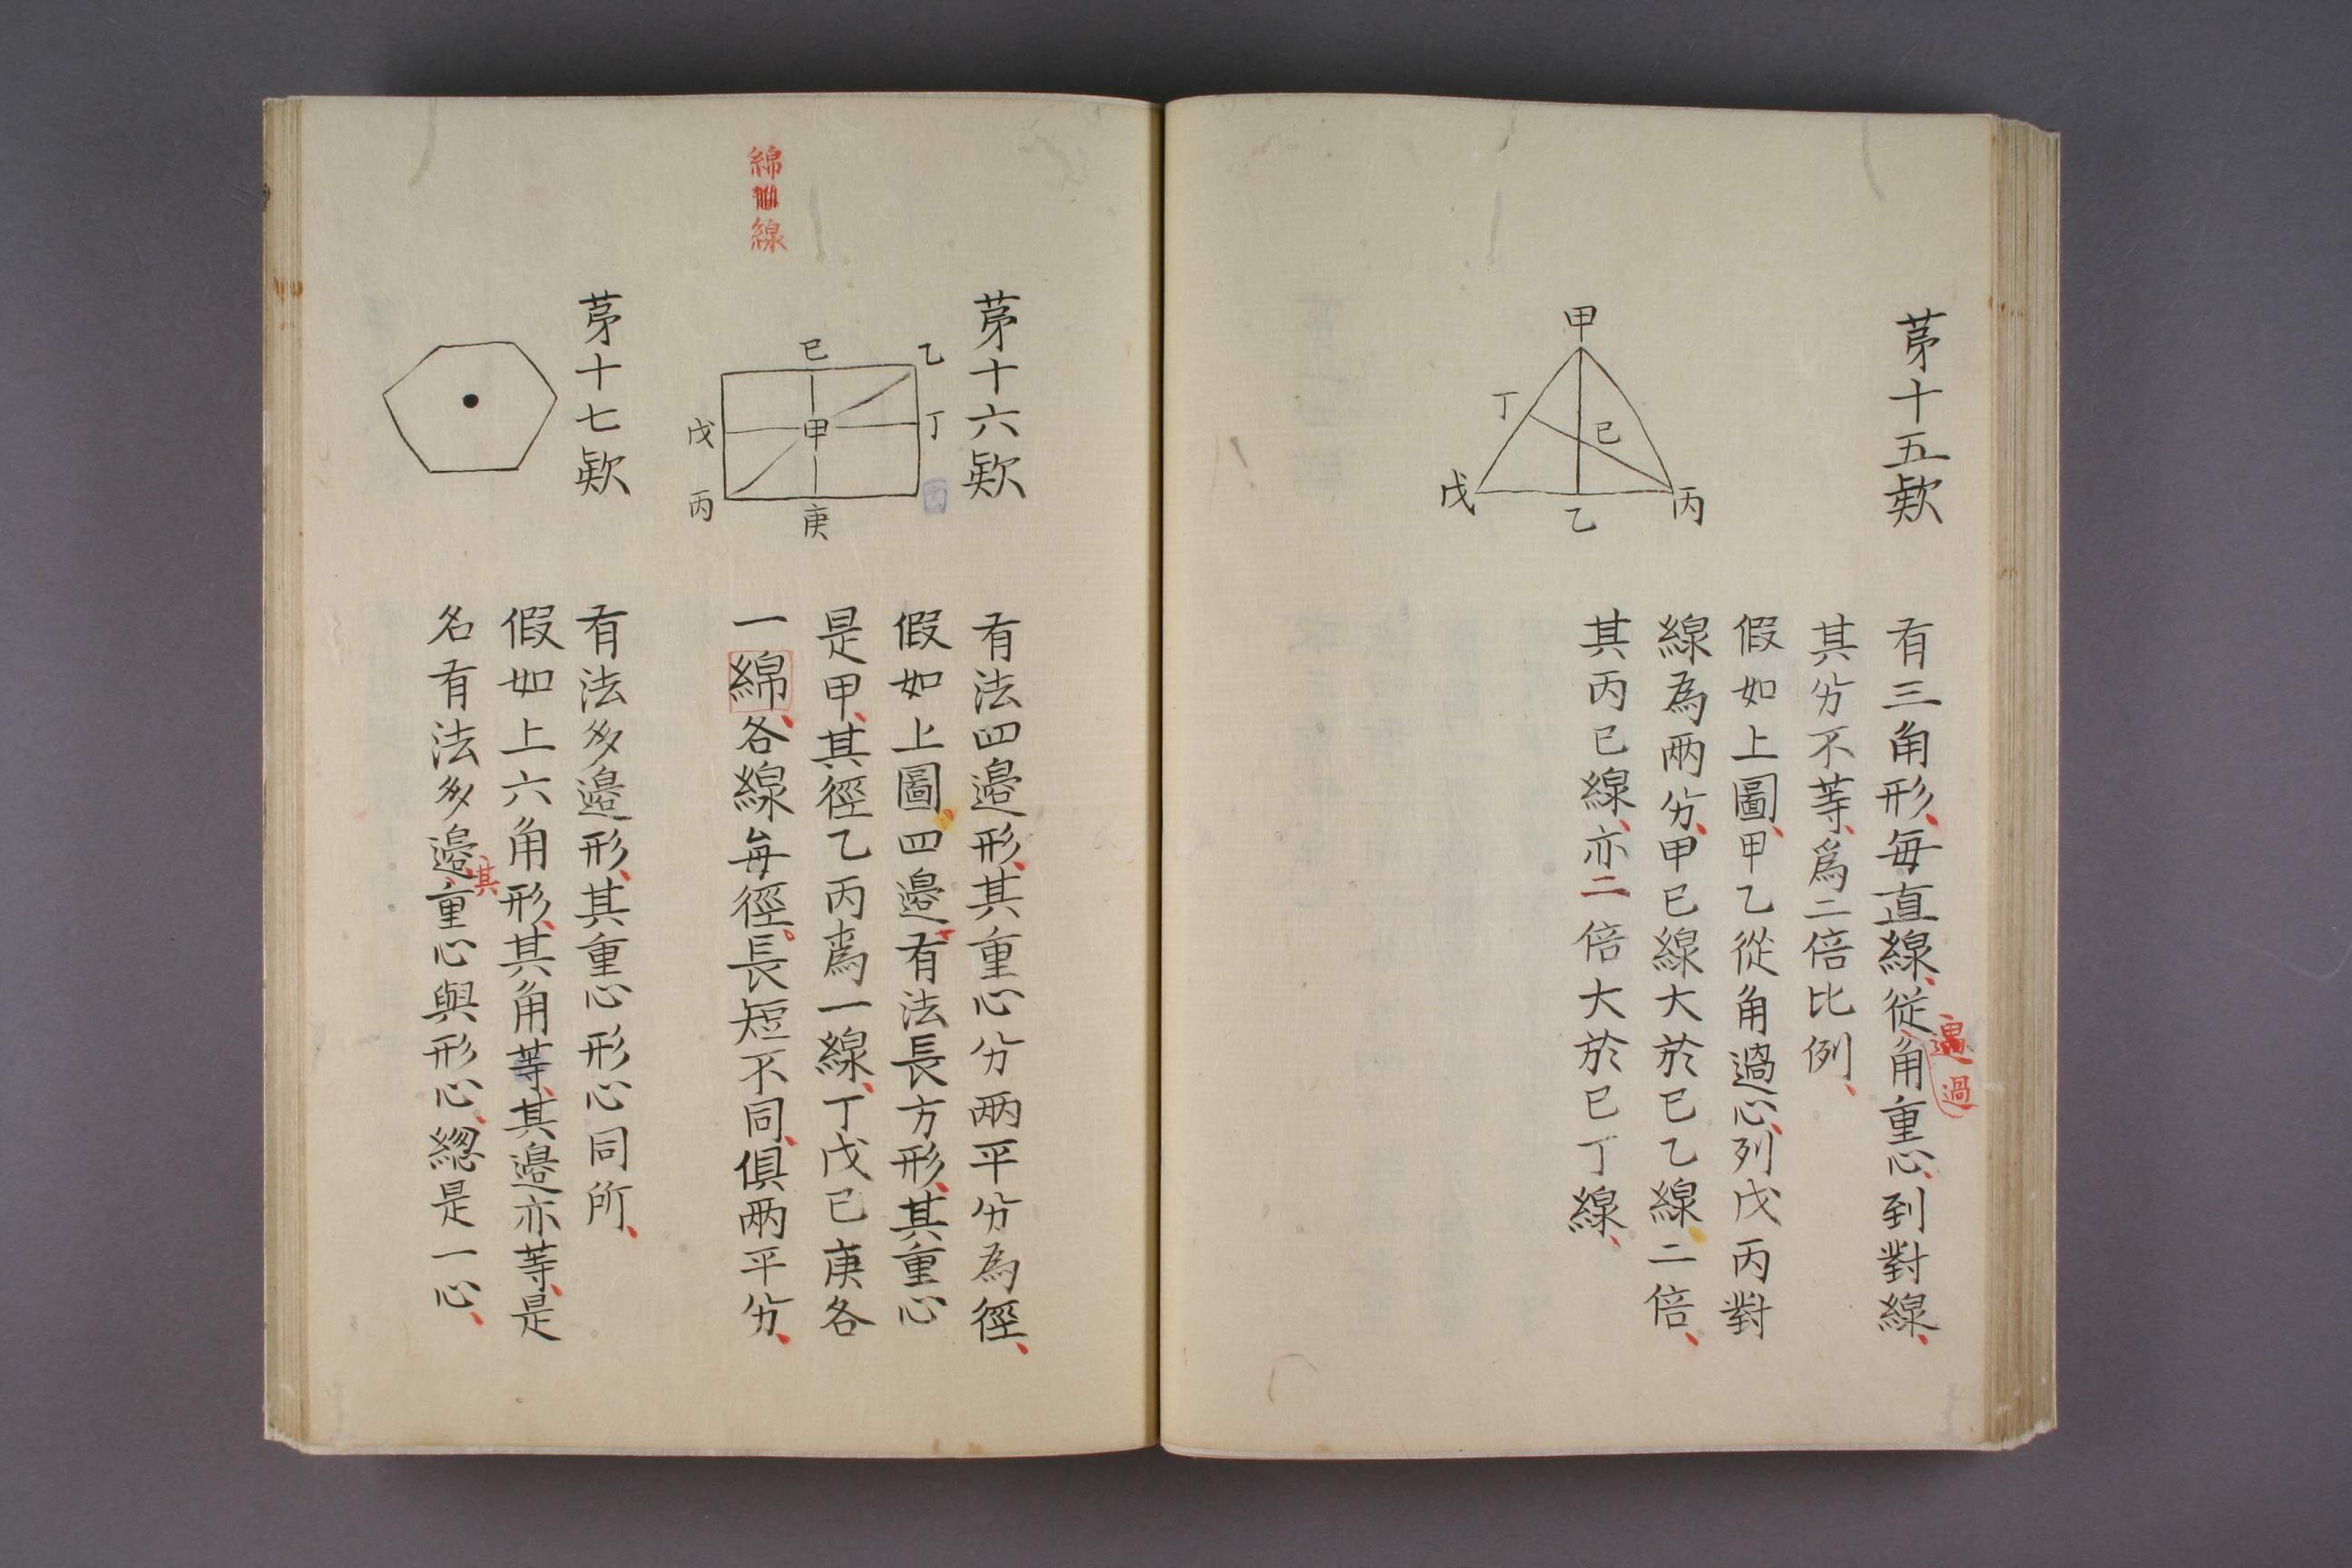 苐十五欵
甲
丁
己
戊
乙
丙
有三角形、每直線、從角重心、到對線、
過
其分不等、爲二倍比例、
假如上圖、甲乙從角過心、列戊丙對
線為兩分、甲已線大於已乙線、二倍、
其丙已線、亦二倍大於已丁線、
苐十六欵
已
乙
丁
甲
戊
丙
庚
有法四邉形、其重心分两平分為徑、
假如上圖四邉、有法長方形、其重心
是甲、其徑乙丙爲一線、丁戊已庚各
一綿、各線每徑。長短不同、俱兩平分、
綿
線
苐十七欵
有法多邉形、其重心形心同所、
假如上六角形、其角等、其邉亦等、是
名有法多邉、其重心與形心、緫是一心、